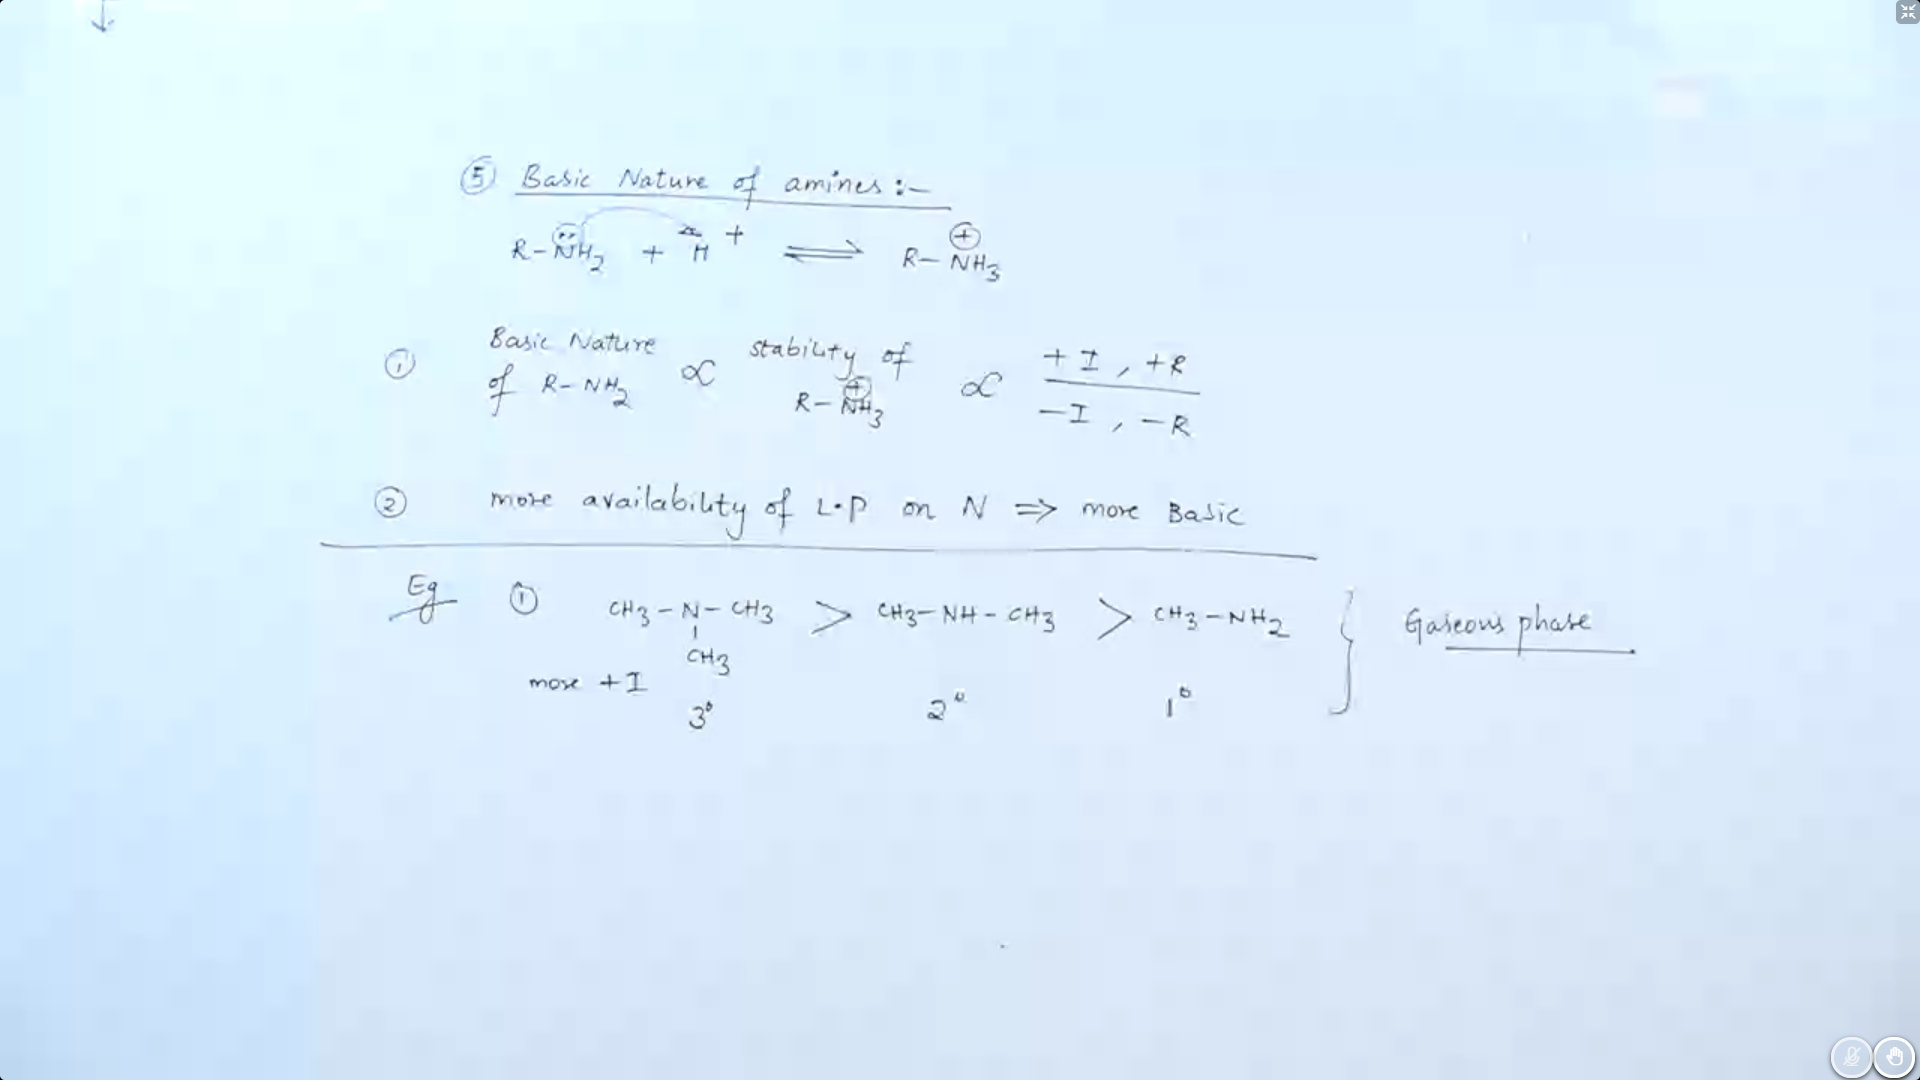 ⑤ Basic Nature of amines :-
R-N̈H₂ + H⁺ ⇌ R-NH₃⊕
① Basic Nature of R-NH₂ ∝ stability of R-NH₃⊕ ∝ +I, +R / -I, -R
② more availability of L.P on N ⇒ more Basic
Eg ① CH₃-N-CH₃ > CH₃-NH-CH₃ > CH₃-NH₂ } Gaseous phase
CH₃
more +I
3° 2° 1°